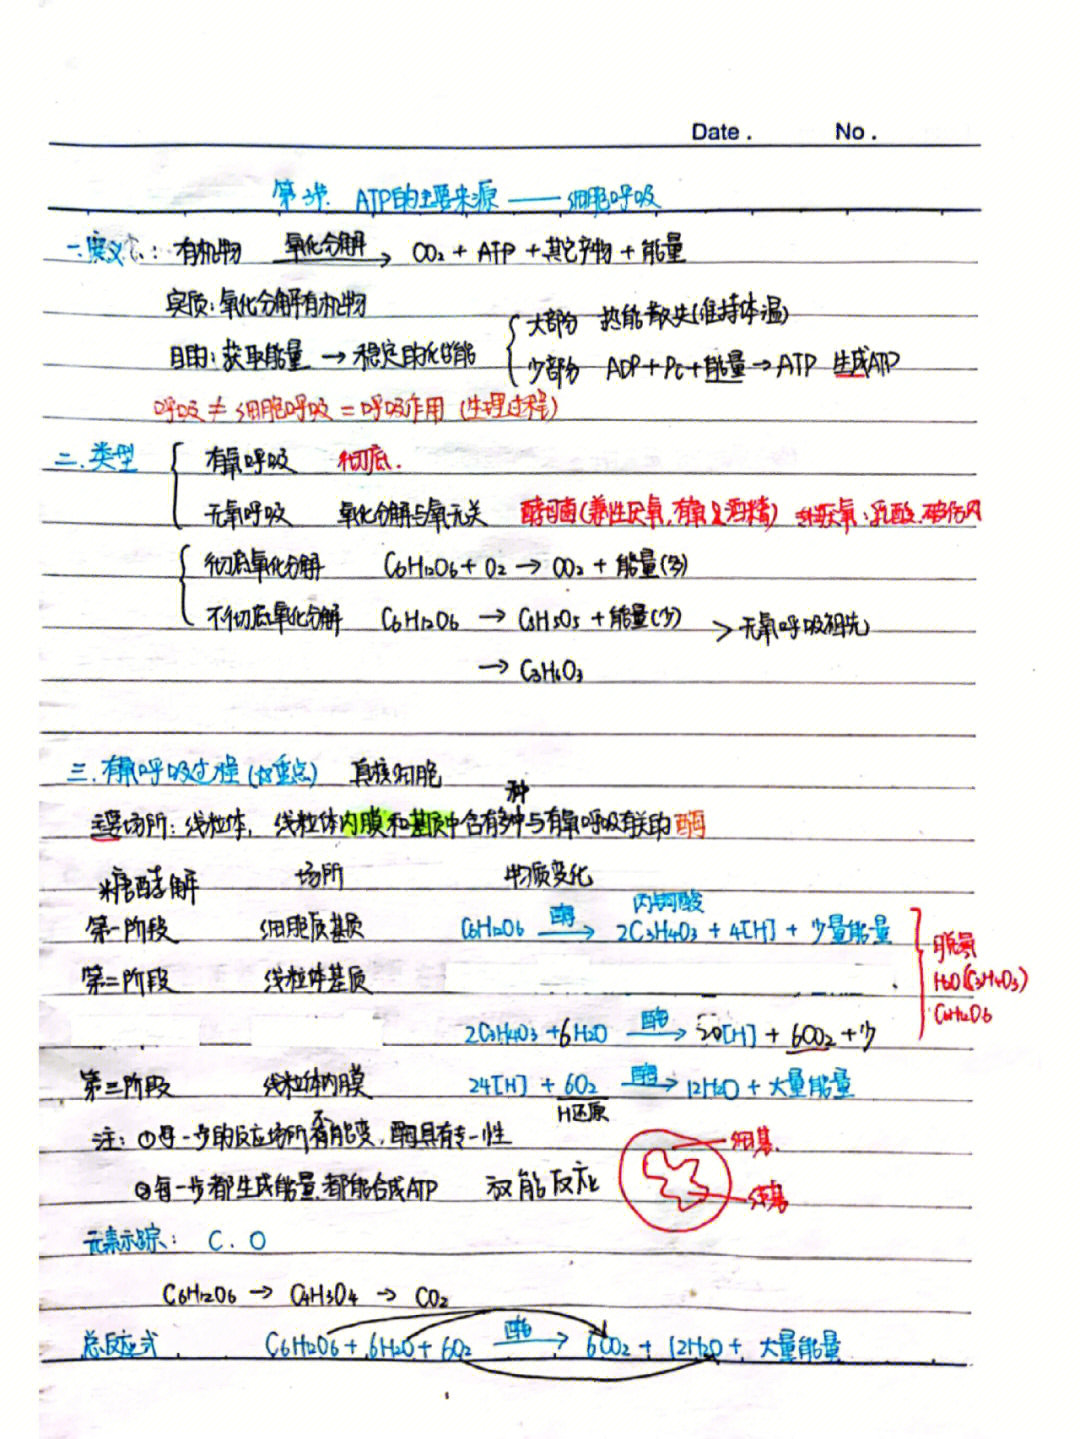 Date. No.
第3节. ATP的主要来源——细胞呼吸
一.定义: 有机物 氧化分解→ CO₂ + ATP + 其它产物 + 能量
实质: 氧化分解有机物
目的: 获取能量 → 稳定的化学能 { 大部分 热能散失(维持体温)
少部分 ADP+Pi+能量→ATP 生成ATP
呼吸 ≠ 细胞呼吸 = 呼吸作用 (生理过程)
二.类型 { 有氧呼吸 彻底.
无氧呼吸 氧化分解与氧无关 酵母菌(兼性厌氧,有氧 酒精) 厌氧:乳酸.破伤风
{ 彻底氧化分解 C6H12O6 + O2 → CO2 + 能量(多)
不彻底氧化分解 C6H12O6 → C2H5O5 + 能量(少) > 无氧呼吸祖先
→ C3H6O3
三.有氧呼吸过程(大重点) 真核细胞
种
主要场所: 线粒体, 线粒体内膜和基质中含有多种与有氧呼吸有关的酶
糖酵解 场所 物质变化
第一阶段 细胞质基质 C6H12O6 酶→ 2C3H4O3 + 4[H] + 少量能量 丙酮酸
第二阶段 线粒体基质
脱氢
H2O(C3H4O3)
C6H12O6
2C3H4O3 + 6H2O 酶→ 20[H] + 6CO2 + 少
第三阶段 线粒体内膜 24[H] + 6O2 酶→ 12H2O + 大量能量
H还原
注: ①每一步的反应场所不能变,酶具有专一性
细基.
②每一步都生成能量,都能合成ATP 放能反应
线基
元素示踪: C. O
C6H12O6 → C4H3O4 → CO2
总反应式 C6H12O6 + 6H2O + 6O2 酶→ 6CO2 + 12H2O + 大量能量